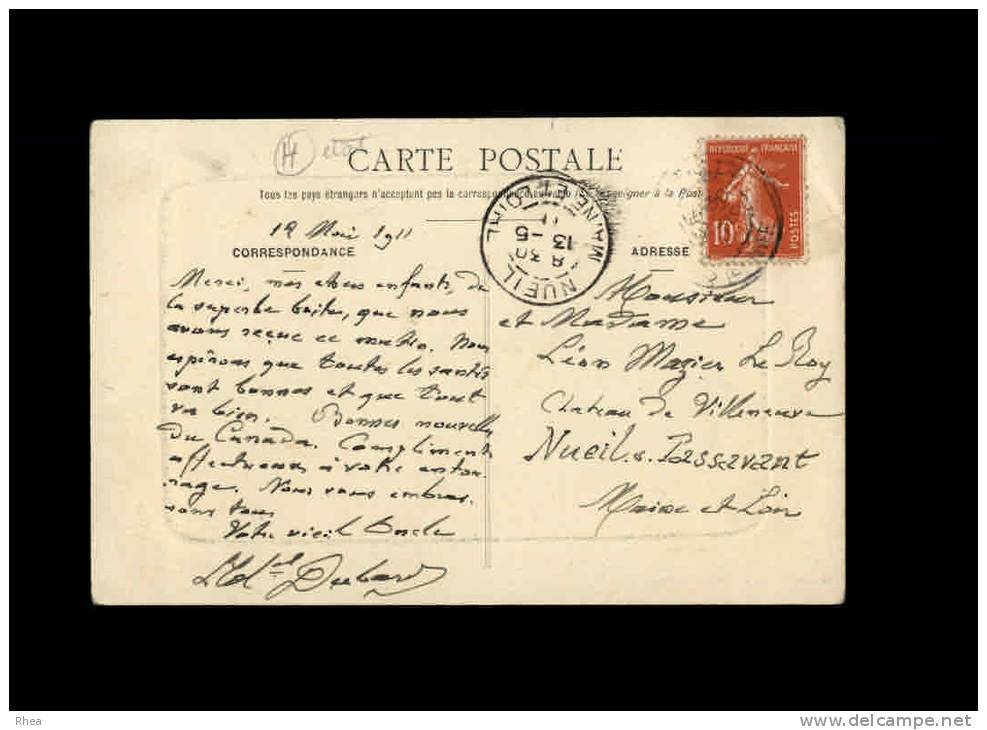 H état
CARTE POSTALE
Tous les pays étrangers n'acceptent pas la correspondance au verso (se renseigner à la Poste)
RÉPUBLIQUE FRANÇAISE
10c
POSTES
NUEIL
MAINE-ET-LOIRE
8 30
13 - 5
11
12 Mai 1911
CORRESPONDANCE
Merci, mes chers enfants, de
la superbe boite, que nous
avons reçue ce matin. Nous
espérons que toutes les santés
sont bonnes et que tout
va bien. Bonnes nouvelles
du Canada. Compliments
affectueux à votre entou-
rage. Nous vous embras-
sons tous
Votre vieil Oncle
ADRESSE
Monsieur
et Madame
Léon Mazier Le Roy
Chateau de Villeneuve
Nueil s. Passavant
Maine et Loir
Rhea
www.delcampe.net